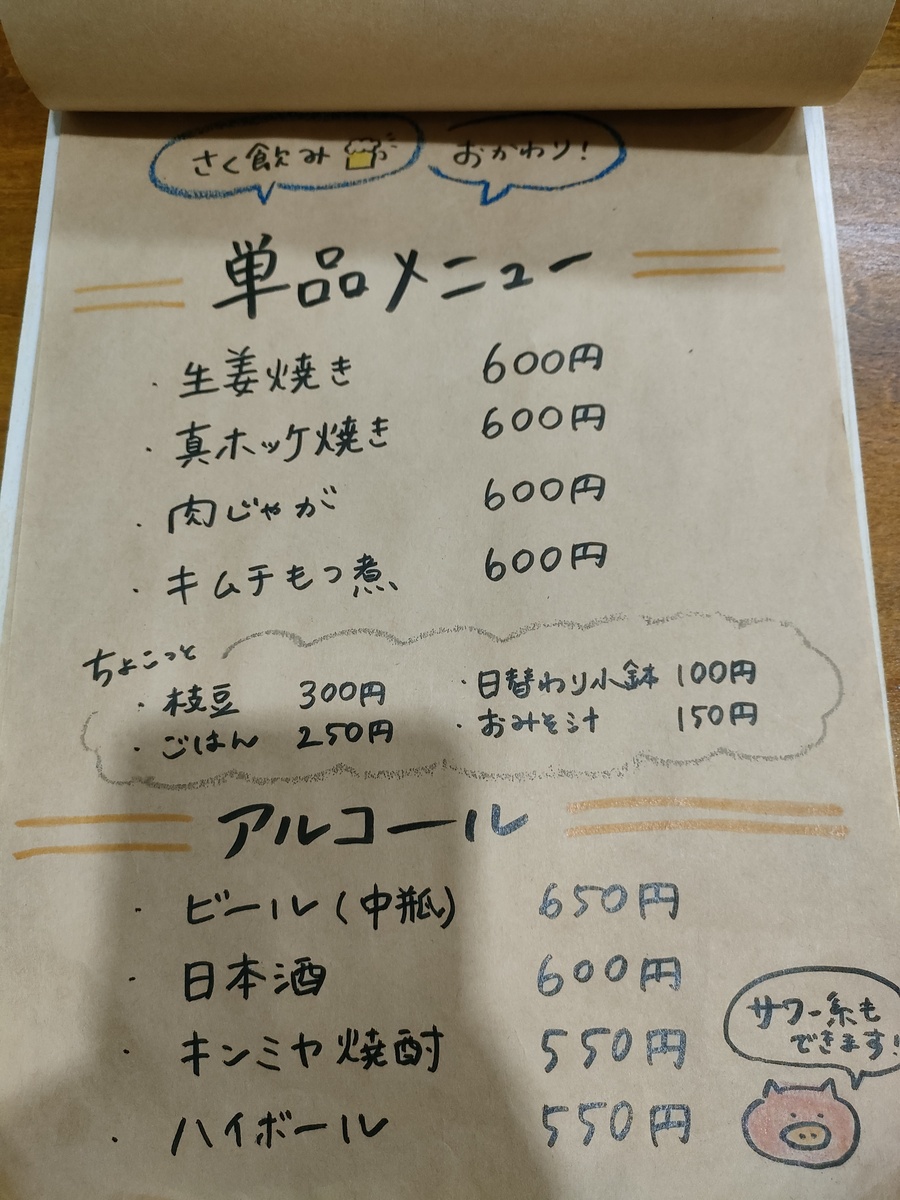 さく飲み
おかわり!
単品メニュー
・生姜焼き 600円
・真ホッケ焼き 600円
・肉じゃが 600円
・キムチもつ煮 600円
ちょこっと
・枝豆 300円 ・日替わり小鉢 100円
・ごはん 250円 ・おみそ汁 150円
アルコール
・ビール(中瓶) 650円
・日本酒 600円
・キンミヤ焼酎 550円
・ハイボール 550円
サワー系も
できます!